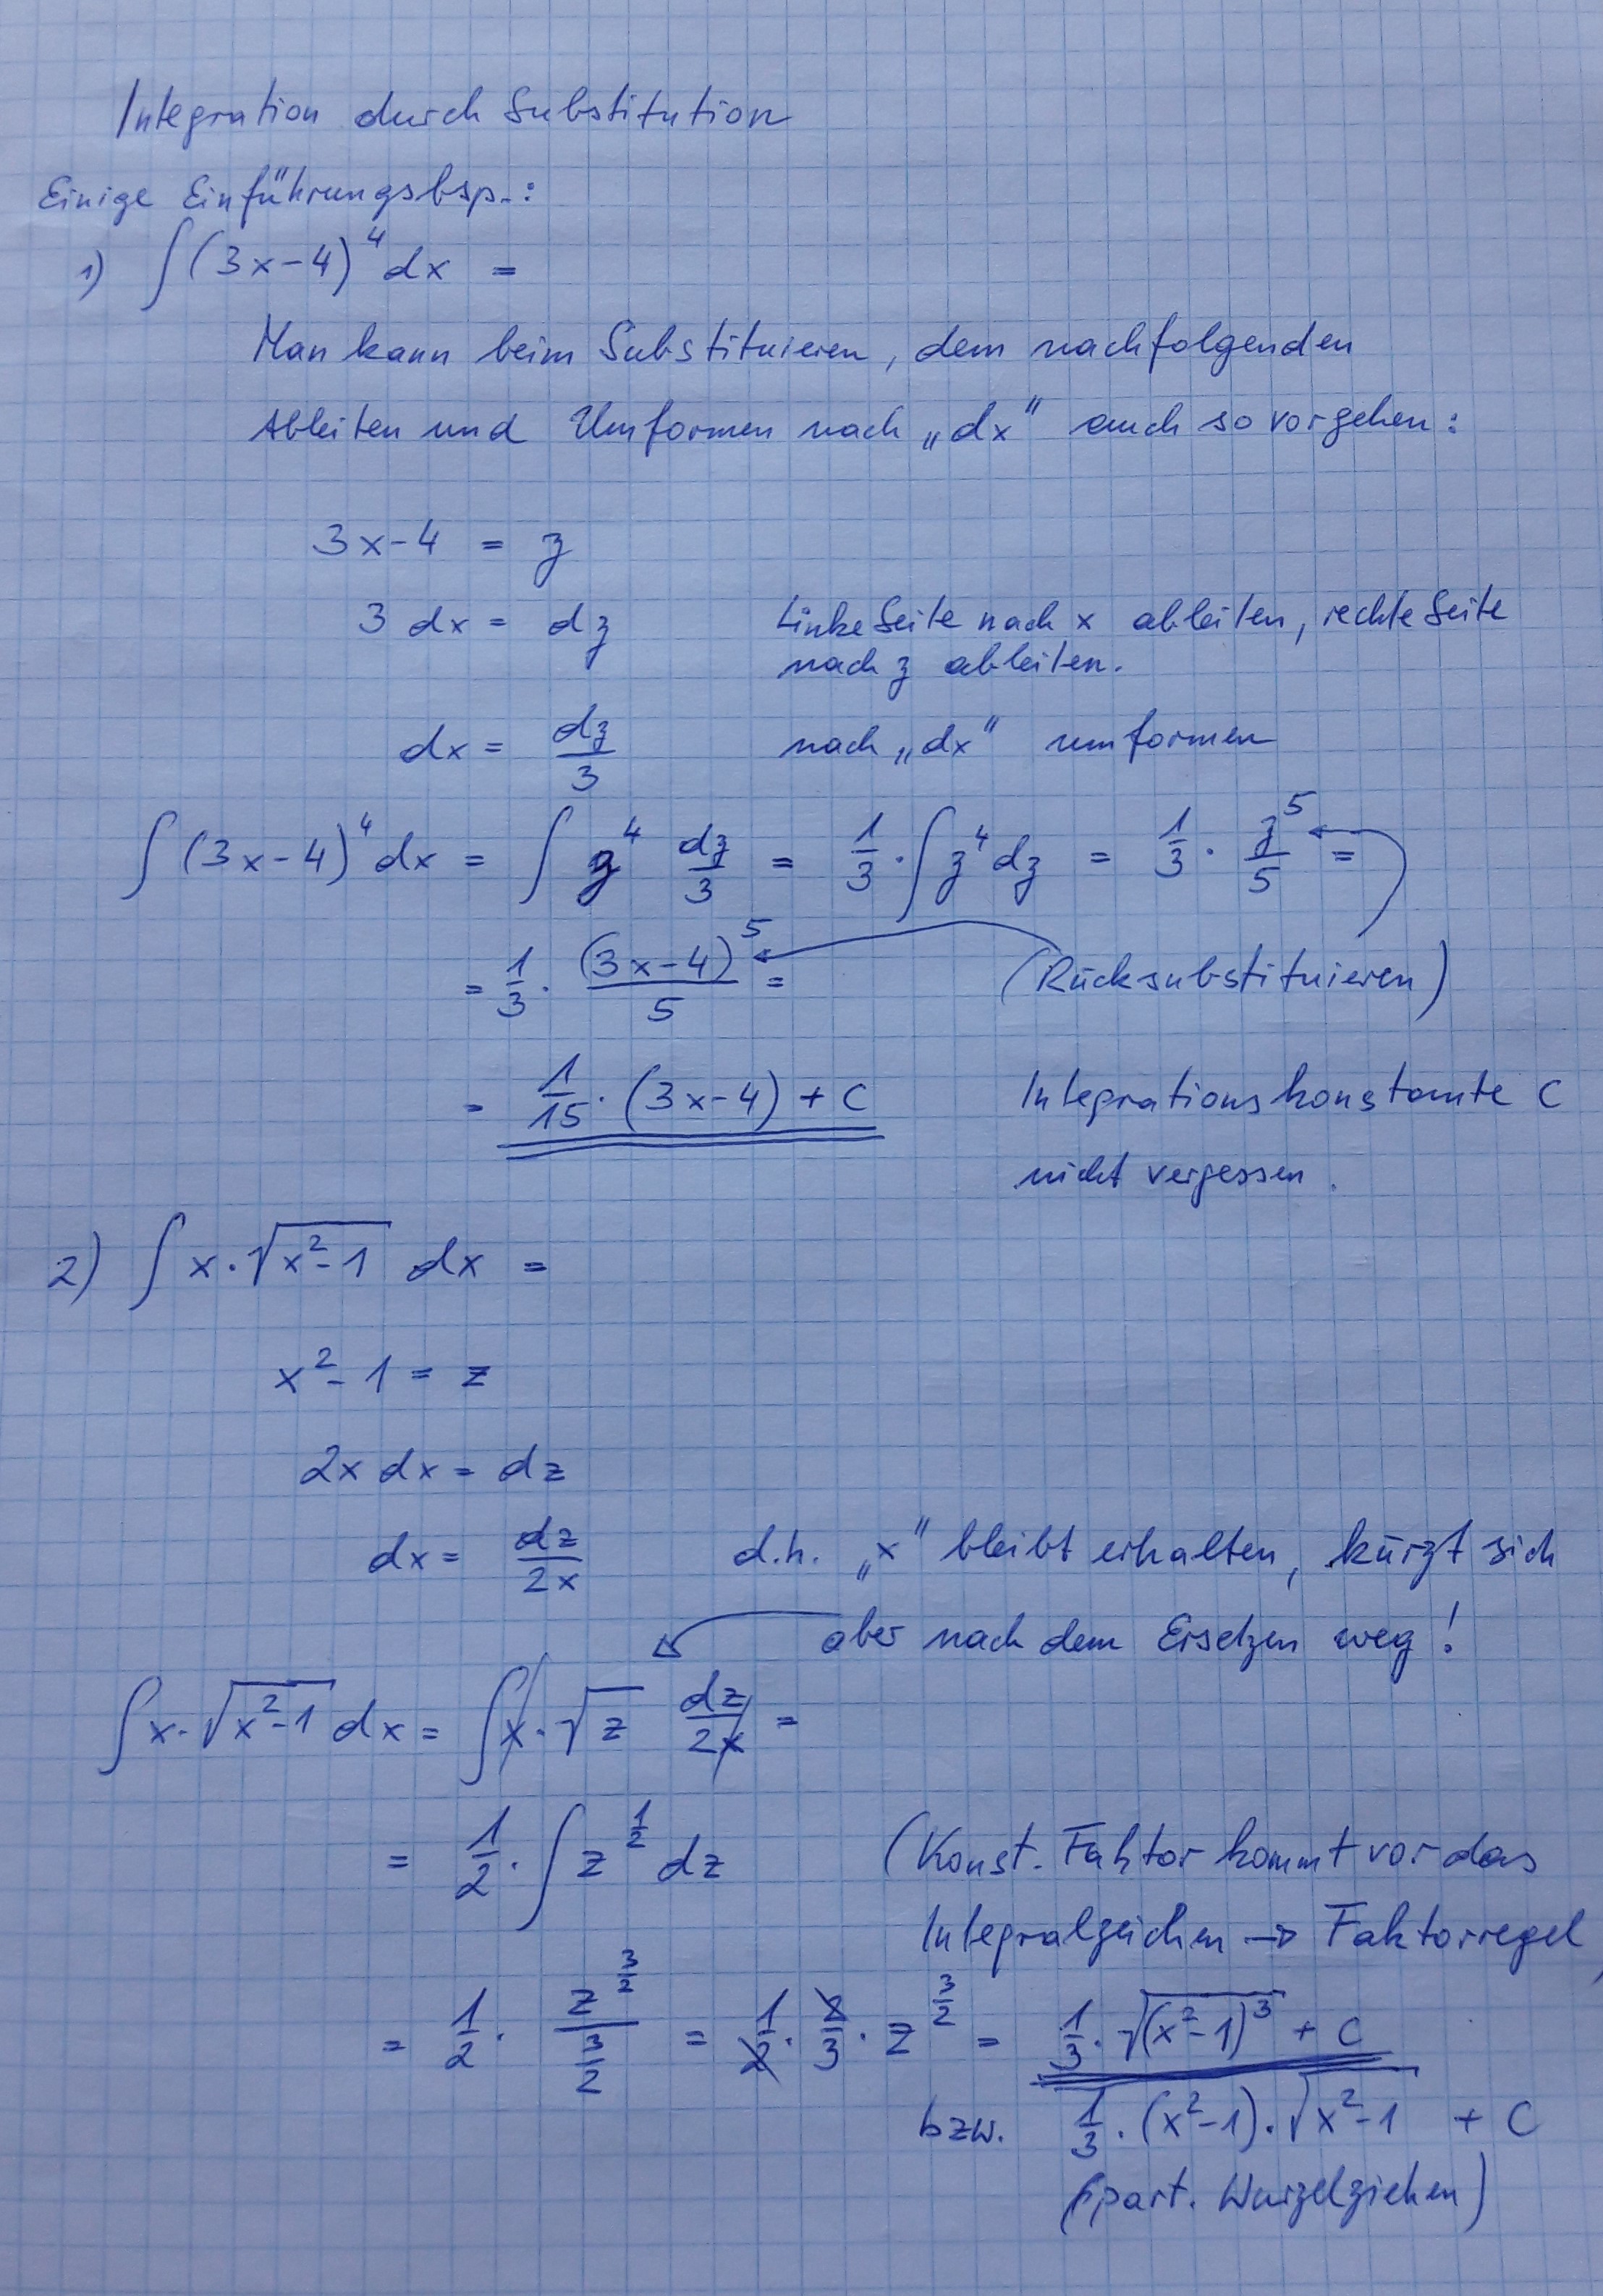 Integration durch Substitution
Einige Einführungsbsp.:
1) ∫(3x-4)⁴ dx =
Man kann beim Substituieren, dem nachfolgenden
Ableiten und Umformen nach „dx" auch so vorgehen:
3x-4 = z
3 dx = dz Linke Seite nach x ableiten, rechte Seite
nach z ableiten.
dx = dz/3 nach „dx" umformen
∫(3x-4)⁴ dx = ∫ z⁴ dz/3 = 1/3 · ∫z⁴ dz = 1/3 · z⁵/5 =
= 1/3 · (3x-4)⁵/5 = (Rücksubstituieren)
= 1/15 · (3x-4) + C Integrationskonstante C
nicht vergessen.
2) ∫ x·√(x²-1) dx =
x²-1 = z
2x dx = dz
dx = dz/2x d.h. „x" bleibt erhalten, kürzt sich
aber nach dem Ersetzen weg!
∫x·√(x²-1) dx = ∫x·√z dz/2x =
= 1/2 · ∫ z^(1/2) dz (Konst. Faktor kommt vor das
Integralzeichen → Faktorregel)
= 1/2 · z^(3/2)/(3/2) = 1/2 · 2/3 · z^(3/2) = 1/3 · √((x²-1)³) + C
bzw. 1/3 · (x²-1)·√(x²-1) + C
(part. Wurzelziehen)